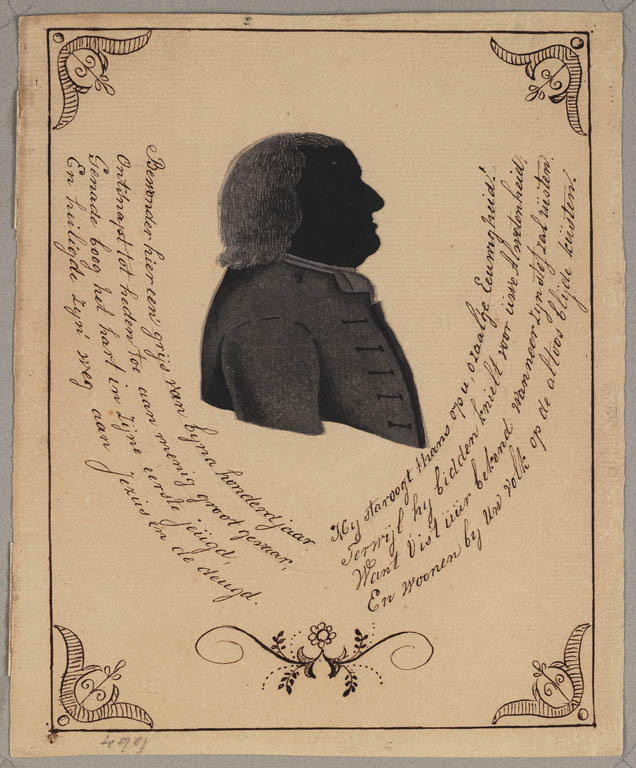 Bewonder hier een' grijs van byna honderd jaar
Ontsnapt tot heden toe aan menig groot gevaar,
Genade boog het hart in Zijne eerste jeügd,
En heiligde Zijn' weg aan Jezüs en de deugd.
Hy staroogt thans op u o zaalge Eeuwigheid!
Terwijl hy bidden knielt voor üwe
Want 't is t üür bekend wanneer zyn stof zal rüsten.
En woonen by Uw volk op de altoos blijde küsten.
1624